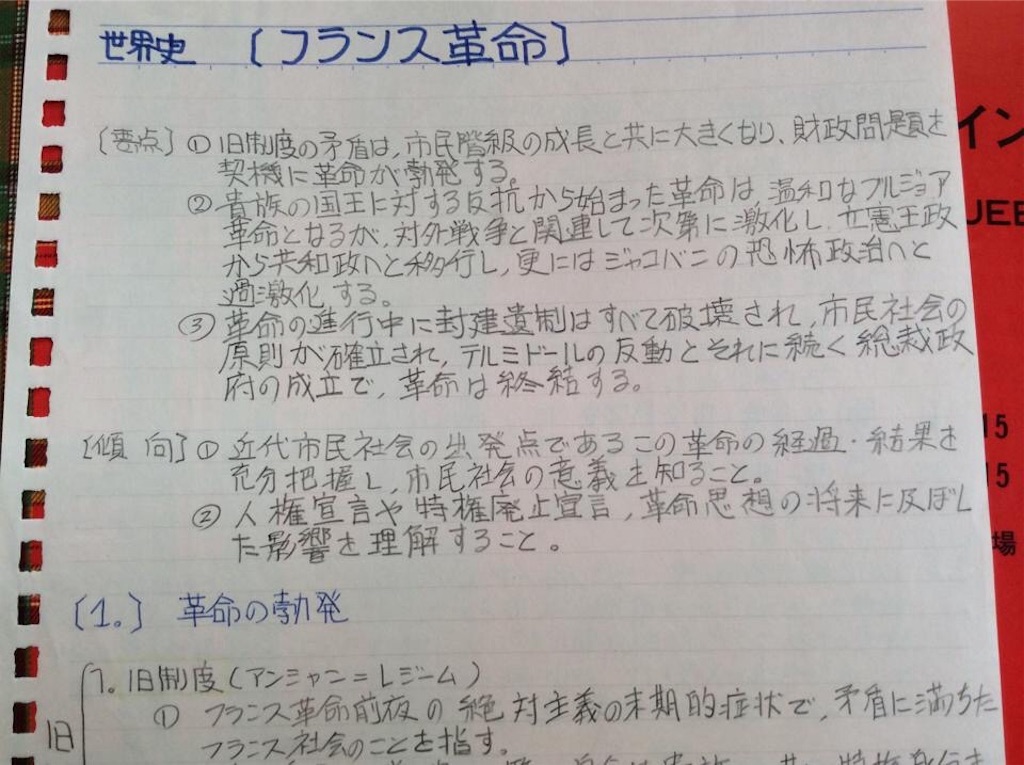 世界史 〔フランス革命〕
〔要点〕① 旧制度の矛盾は、市民階級の成長と共に大きくなり、財政問題を
契機に革命が勃発する。
② 貴族の国王に対する反抗から始まった革命は、温和なブルジョア
革命となるが、対外戦争と関連して次第に激化し、立憲王政
から共和政へと移行し、更にはジャコバニの恐怖政治へと
過激化する。
③ 革命の進行中に封建遺制はすべて破壊され、市民社会の
原則が確立され、テルミドールの反動とそれに続く総裁政
府の成立で、革命は終結する。
〔傾向〕① 近代市民社会の出発点であるこの革命の経過・結果を
充分把握し、市民社会の意義を知ること。
② 人権宣言や特権廃止宣言、革命思想の将来に及ぼし
た影響を理解すること。
〔1.〕 革命の勃発
1. 旧制度(アンシャン=レジーム)
① フランス革命前夜の絶対主義の末期的症状で、矛盾に満ちた
フランス社会のことを指す。
旧
イン
UEE
15
15
場